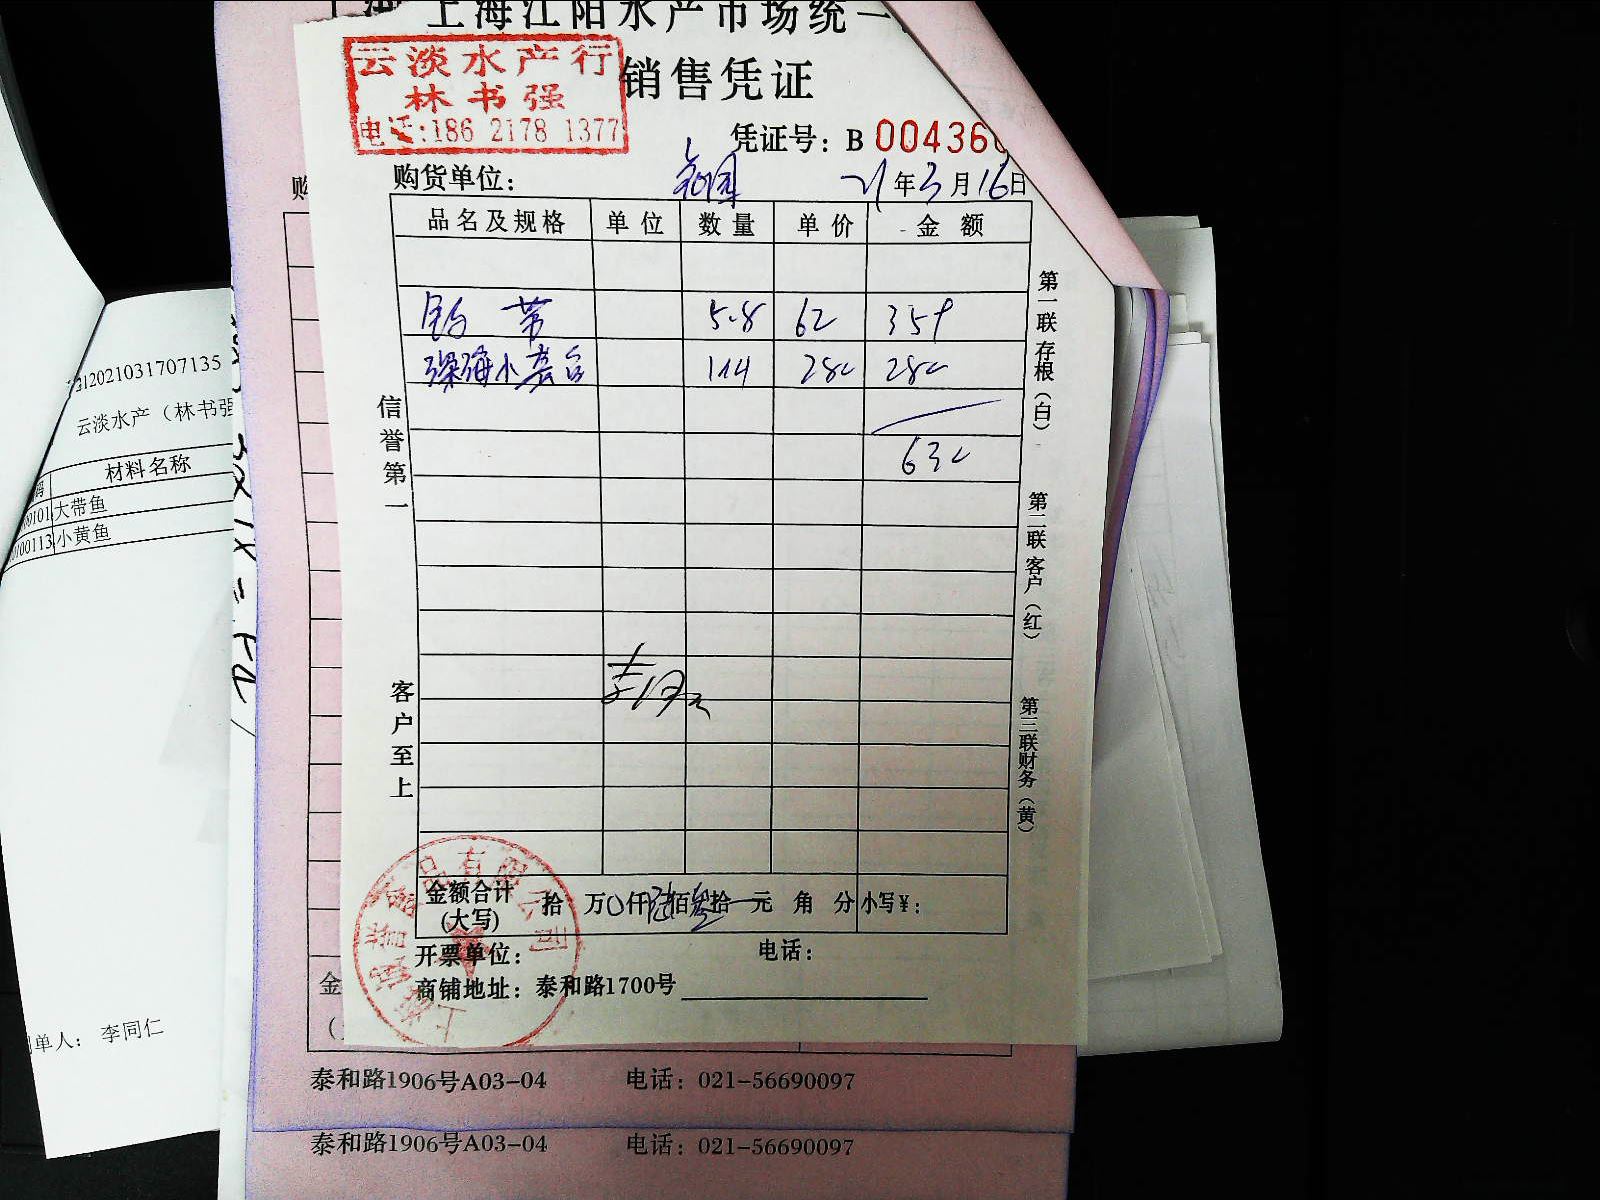 上海江阳水产市场统一
销售凭证
云淡水产行
林书强
电话:186 2178 1377
凭证号：B 00436
购货单位：
21年3月16日
品名及规格 单位 数量 单价 金额
钓带 5.8 62 359
深海小黄鱼 1.14 280 280
630
信誉第一
客户至上
第一联存根（白）
第二联客户（红）
第三联财务（黄）
金额合计
(大写)
拾 万0仟陆佰叁拾一元 角 分 小写¥：
开票单位： 电话：
商铺地址：泰和路1700号
泰和路1906号A03-04 电话：021-56690097
泰和路1906号A03-04 电话：021-56690097
2021031707135
云淡水产（林书强
材料名称
大带鱼
00113 小黄鱼
单人： 李同仁
购
金